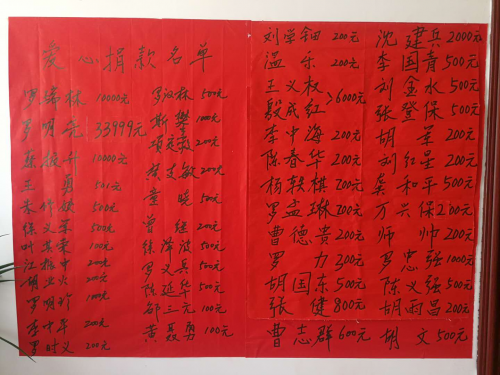 爱心捐款名单
罗瑞林 10000元
罗明 33999元
10000元
王勇 501元
500元
500元
100元
200元
200元
罗明 100元
李中华 200元
罗时义 200元
罗汉林 500元
斯攀 100元
200元
敏 200元
童晓 500元
曾继 200元
徐泽波 500元
罗义兵 500元
陈延华 200元
邵三元 100元
黄聂勇 100元
刘学钿 200元
温乐 200元
王义权
殷成红 >6000元
李中海 200元
陈春华 200元
杨轶棋 200元
罗孟琳 200元
曹德贵 200元
罗力 300元
胡国东 500元
张健 800元
曹志群 600元
沈建兵 2000元
李国青 500元
刘金水 500元
张登保 500元
胡荣 200元
刘红星 200元
龚和平 500元
万兴保 200元
师帅 200元
罗忠强 1000元
陈义强 500元
胡雨昌 200元
胡文 500元